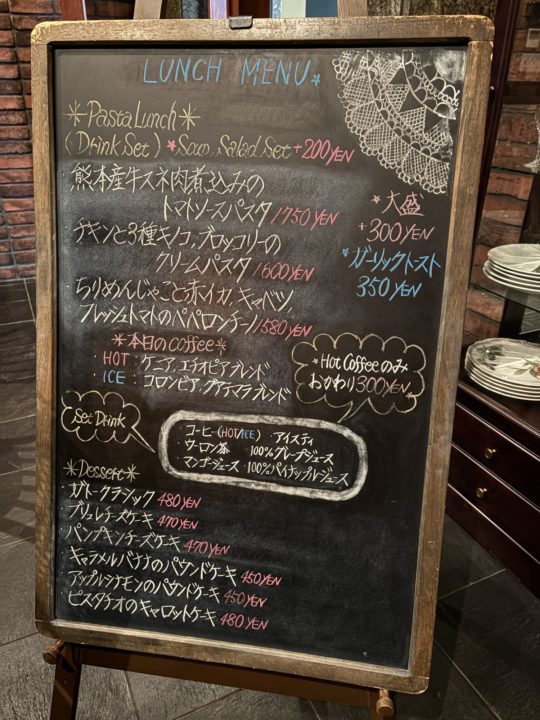 LUNCH MENU
Pasta Lunch
(Drink Set) Soup, Salad Set +200YEN
・熊本産牛スネ肉煮込みの
トマトソースパスタ 1750YEN
・チキンと3種キノコ、ブロッコリーの
クリームパスタ 1600YEN
・ちりめんじゃこと赤イカ、キャベツ、
フレッシュトマトのペペロンチーノ 1580YEN
大盛
+300YEN
ガーリックトースト
350YEN
本日のcoffee
・HOT:ケニア、エチオピアブレンド
・ICE:コロンビア、グアテマラブレンド
Hot Coffeeのみ
おかわり300YEN
Set Drink
・コーヒー(HOT/ICE) ・アイスティ
・ウーロン茶 ・100%グレープジュース
・マンゴージュース ・100%パイナップルジュース
Dessert
・ガトークラシック 480YEN
・ブリュレチーズケーキ 470YEN
・パンプキンチーズケーキ 470YEN
・キャラメルバナナのパウンドケーキ 450YEN
・アップルシナモンのパウンドケーキ 450YEN
・ピスタチオのキャロットケーキ 480YEN